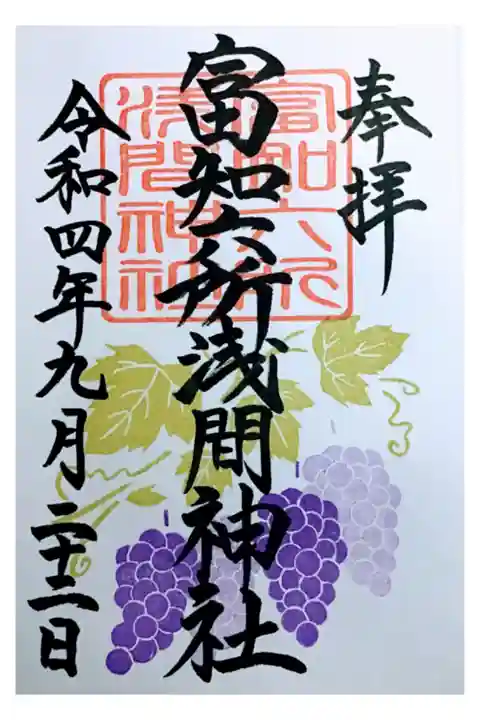 奉拝
富知六所浅間神社
令和四年九月二十二日
富知六所
浅間神社